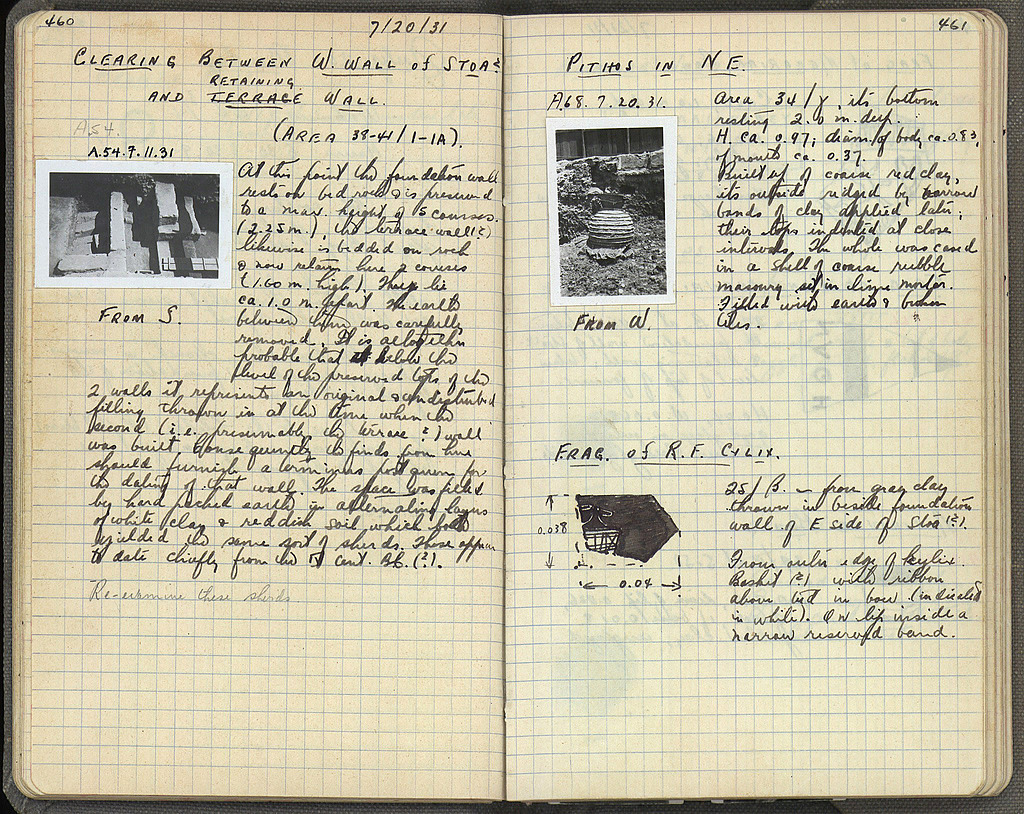 460
7/20/31
CLEARING BETWEEN W. WALL of STOA?
RETAINING
AND TERRACE WALL.
(AREA 38-41/1-1A).
A.54.
A.54.7.11.31
At this point the foundation wall
rests on bed rock & is preserved
to a max. height of 5 courses.
(2.25 m.), the terrace wall (?)
likewise is bedded on rock
& now retains here courses
(1.60 m. high). These lie
ca. 1.0 m. apart. The earth
between them was carefully
removed. It is altogether
probable that below the
level of the preserved tops of the
2 walls it represents an original & undisturbed
filling thrown in at the time when the
second (i.e. presumably the terrace ?) wall
was built. Consequently the finds from here
should furnish a terminus post quem for
the dating of that wall. The space was filled
by hard packed earth in alternating layers
of white clay & reddish soil which both
yielded the same sort of sherds. These appear
to date chiefly from the cent. B.C. (?).
Re-examine these sherds
FROM S.
461
PITHOS IN NE.
A.68. 7.20.31.
Area 34/γ, its bottom
resting 2.0 m. deep.
H. ca. 0.97; diam. of body ca. 0.83,
of mouth ca. 0.37.
Built up of coarse red clay,
its outside ridged by narrow
bands of clay applied later;
their tops indented at close
intervals. The whole was cased
in a shell of coarse rubble
masonry set in lime mortar.
Filled with earth & broken
tiles.
FROM W.
FRAG. of R.F. CYLIX.
25/B. – from gray clay
thrown in beside foundation
wall of E side of Stoa (?).
From outer edge of kylix.
Basket (?) with ribbon
above tied in bow (indicated
in white). On lip inside a
narrow reserved band.
0.038
0.04